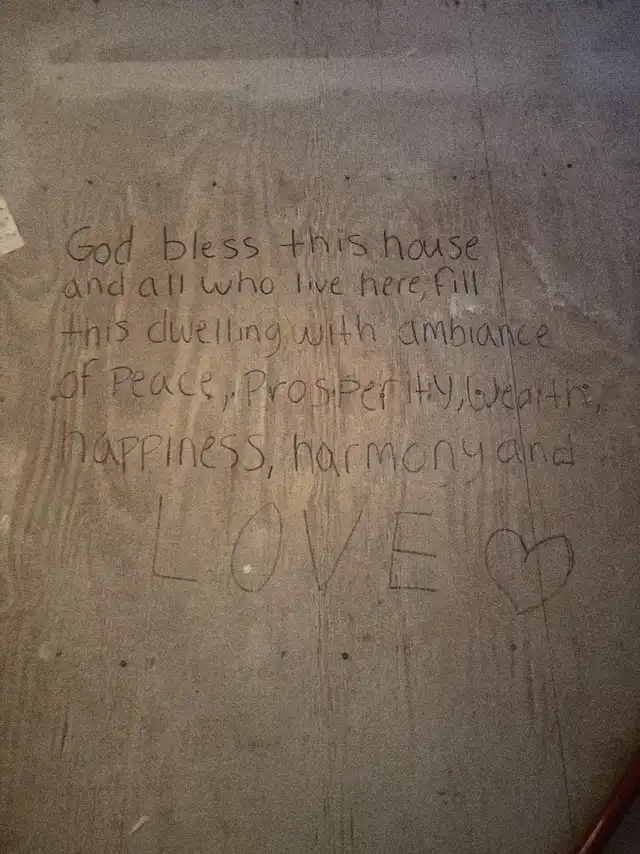 God bless this house
and all who live here, fill
this dwelling with ambiance
of Peace, Prosperity, Wealth,
happiness, harmony and
LOVE